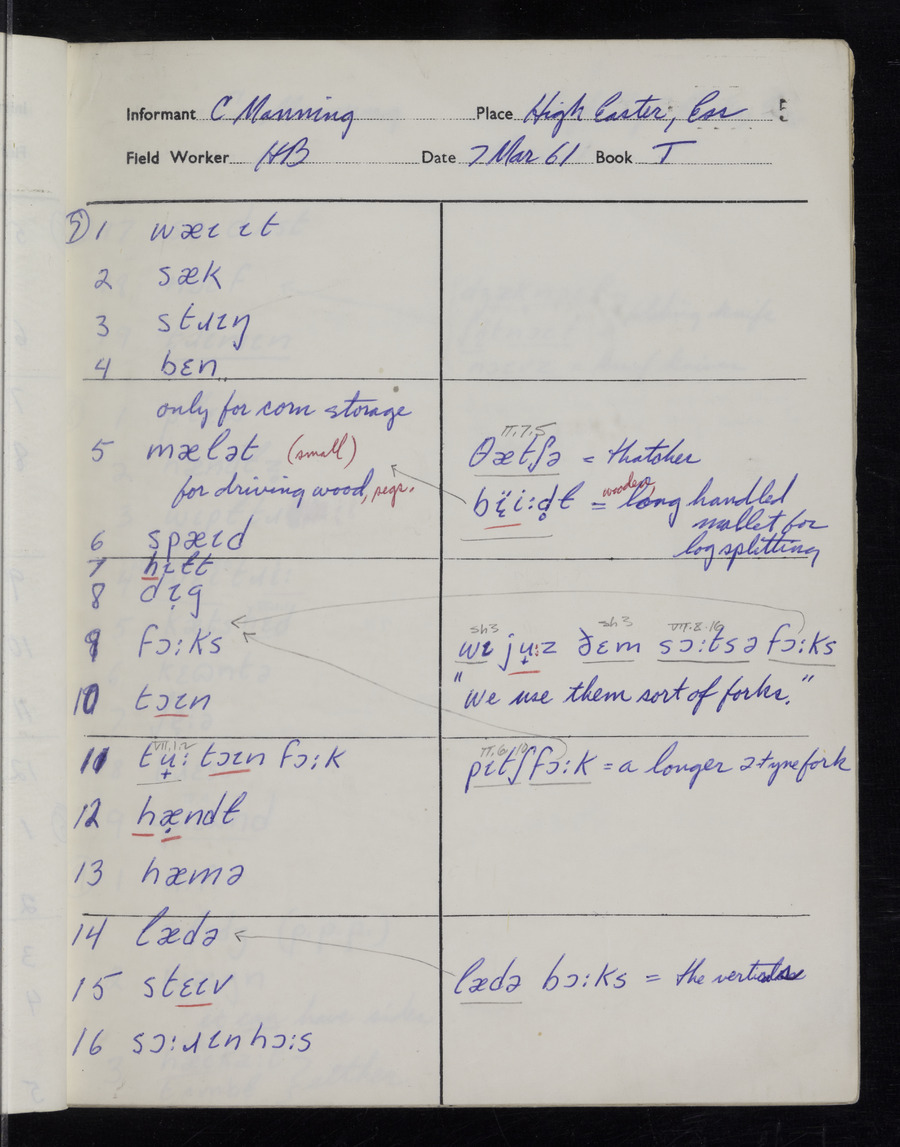 Informant C Manning Place High Easter, Ess 5
Field Worker HB Date 7 Mar 61 Book T
⑤ 1 wæɪɪt
2 sæk
3 stɹɪŋ
4 bɛn
only for corn storage
5 mælət (small)
for driving wood, pegs.
6 spæɪd
7 hɪɫt
8 dɪg
9 fɔ:ks
10 tɔɪn
VII.1.2
11 tu̟: tɔɪn fɔ:k
12 hæ̣ndɫ
13 hæmə
14 lædə
15 stɛɪv
16 sɔ:ɹɪnhɔ:s
II.7.5
θætʃə = thatcher
= wooden long handled
mallet for
log splitting
sh3 sh3 VII.8.19
wɪ ju̟:z ðɛm sɔ:tsə fɔ:ks
"we use them sort of forks."
II.6.10
pɪtʃfɔ:k = a longer 2 tyne fork
lædə bɔ:ks = the verticals